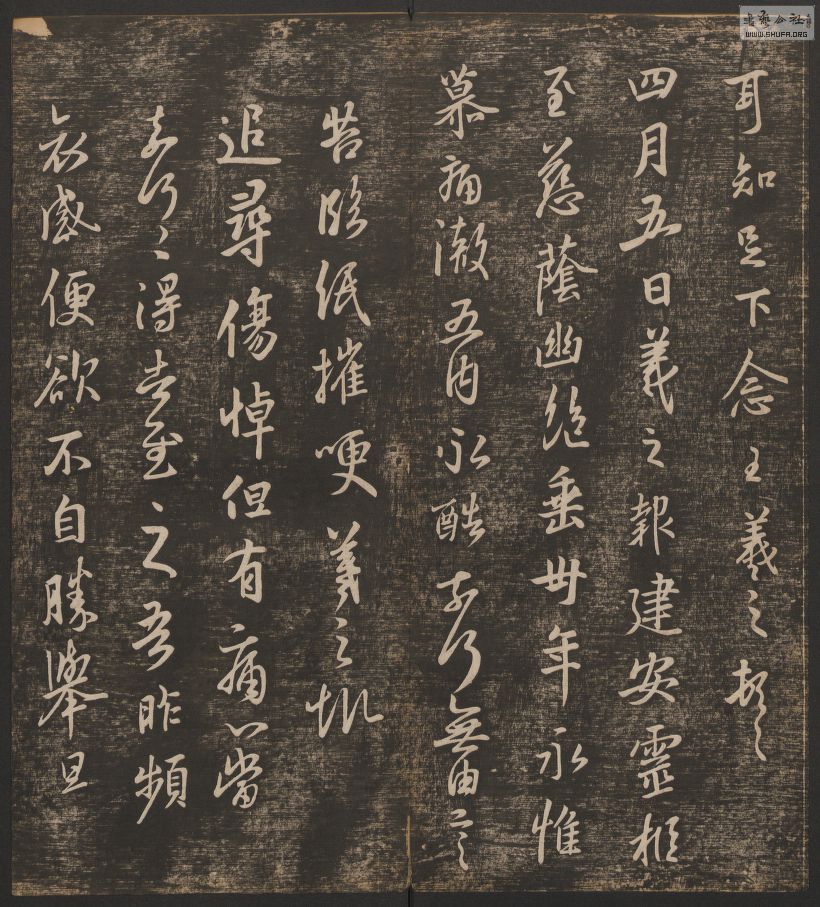 耳知足下念王羲之頓首
四月五日羲之報建安靈柩
至慈蔭幽絕垂丗年永惟
慕痛澈五內永酷奈何無由言
苦臨紙摧哽羲之報
追尋傷悼但有痛心當
奈何〻得告慰之吾昨頻
哀感便欲不自勝舉旦
書藝公社
WWW.SHUFA.ORG